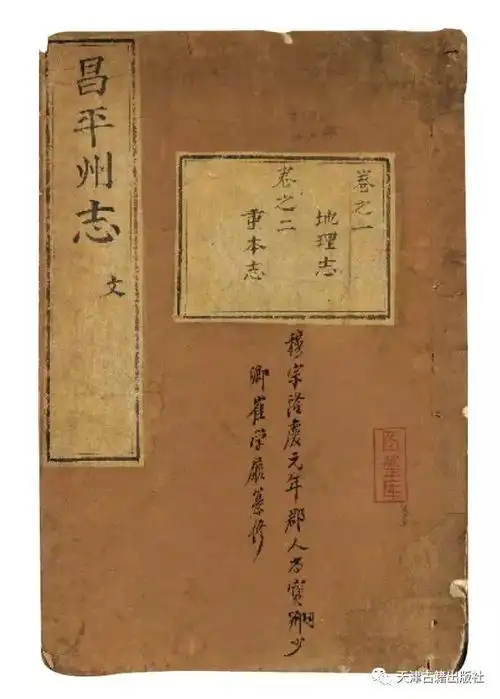 昌平州志
文
卷之一
地理志
卷之二
事本志
穆宗隆慶元年郡人尚寶卿少
卿崔学履纂修
天津古籍出版社